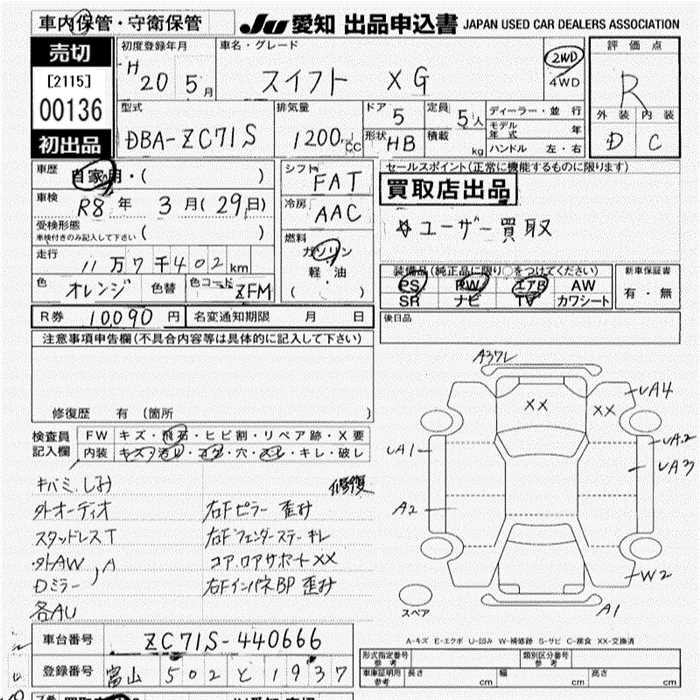 車内保管・守衛保管
JU 愛知 出品申込書 JAPAN USED CAR DEALERS ASSOCIATION
売切
[2115]
00136
初出品
初度登録年月
H 20 5月
車名・グレード
スイフト XG
2WD
4WD
評価点
R
外装 内装
D C
型式
DBA-ZC71S
排気量
1200 CC
ドア 5
形状 HB
定員 5人
積載 kg
ディーラー・並行
モデル年式 年
ハンドル 左・右
車歴
自家用・( )
車検
R8年 3月(29日)
受検形態
車検付きのみ記入して下さい ( )
走行
11万7千402km
色 オレンジ 色替 色コード ZFM
シフト
FAT
冷房
AAC
燃料
ガソリン
軽・油
( )
セールスポイント(正常に機能するものに限ります)
買取店出品
☆ユーザー買取
装備品(純正品に限り○をつけてください)
PS PW エアB AW
SR ナビ TV カワシート
新車保証書
有・無
R券 10,090円 名変通知期限 月 日
後日品
注意事項申告欄(不具合内容等は具体的に記入して下さい)
修復歴 有(箇所 )
検査員記入欄
FW キズ・飛石・ヒビ割・リペア跡・X要
内装 キズ・汚れ・コゲ・穴・スレ・キレ・破レ
キバミ、しみ 修復
外オーディオ 右Fピラー 歪み
スタッドレスT 右Fフェンダーステー キレ
・外AW、A コア、ロアサポートXX
Dミラー 右FインパネBP 歪み
各AU
A37L
XX
XX
UA4
UA1
UA2
UA3
A2
W2
A1
スペア
A-キズ E-エクボ U-凹み W-補修跡 S-サビ C-腐食 XX-交換済
車台番号 ZC71S-440666
登録番号 富山 502 と 1937
形式指定番号 参考
類別区分番号 参考
車庫証明用 参考 長さ cm 幅 cm 高さ cm